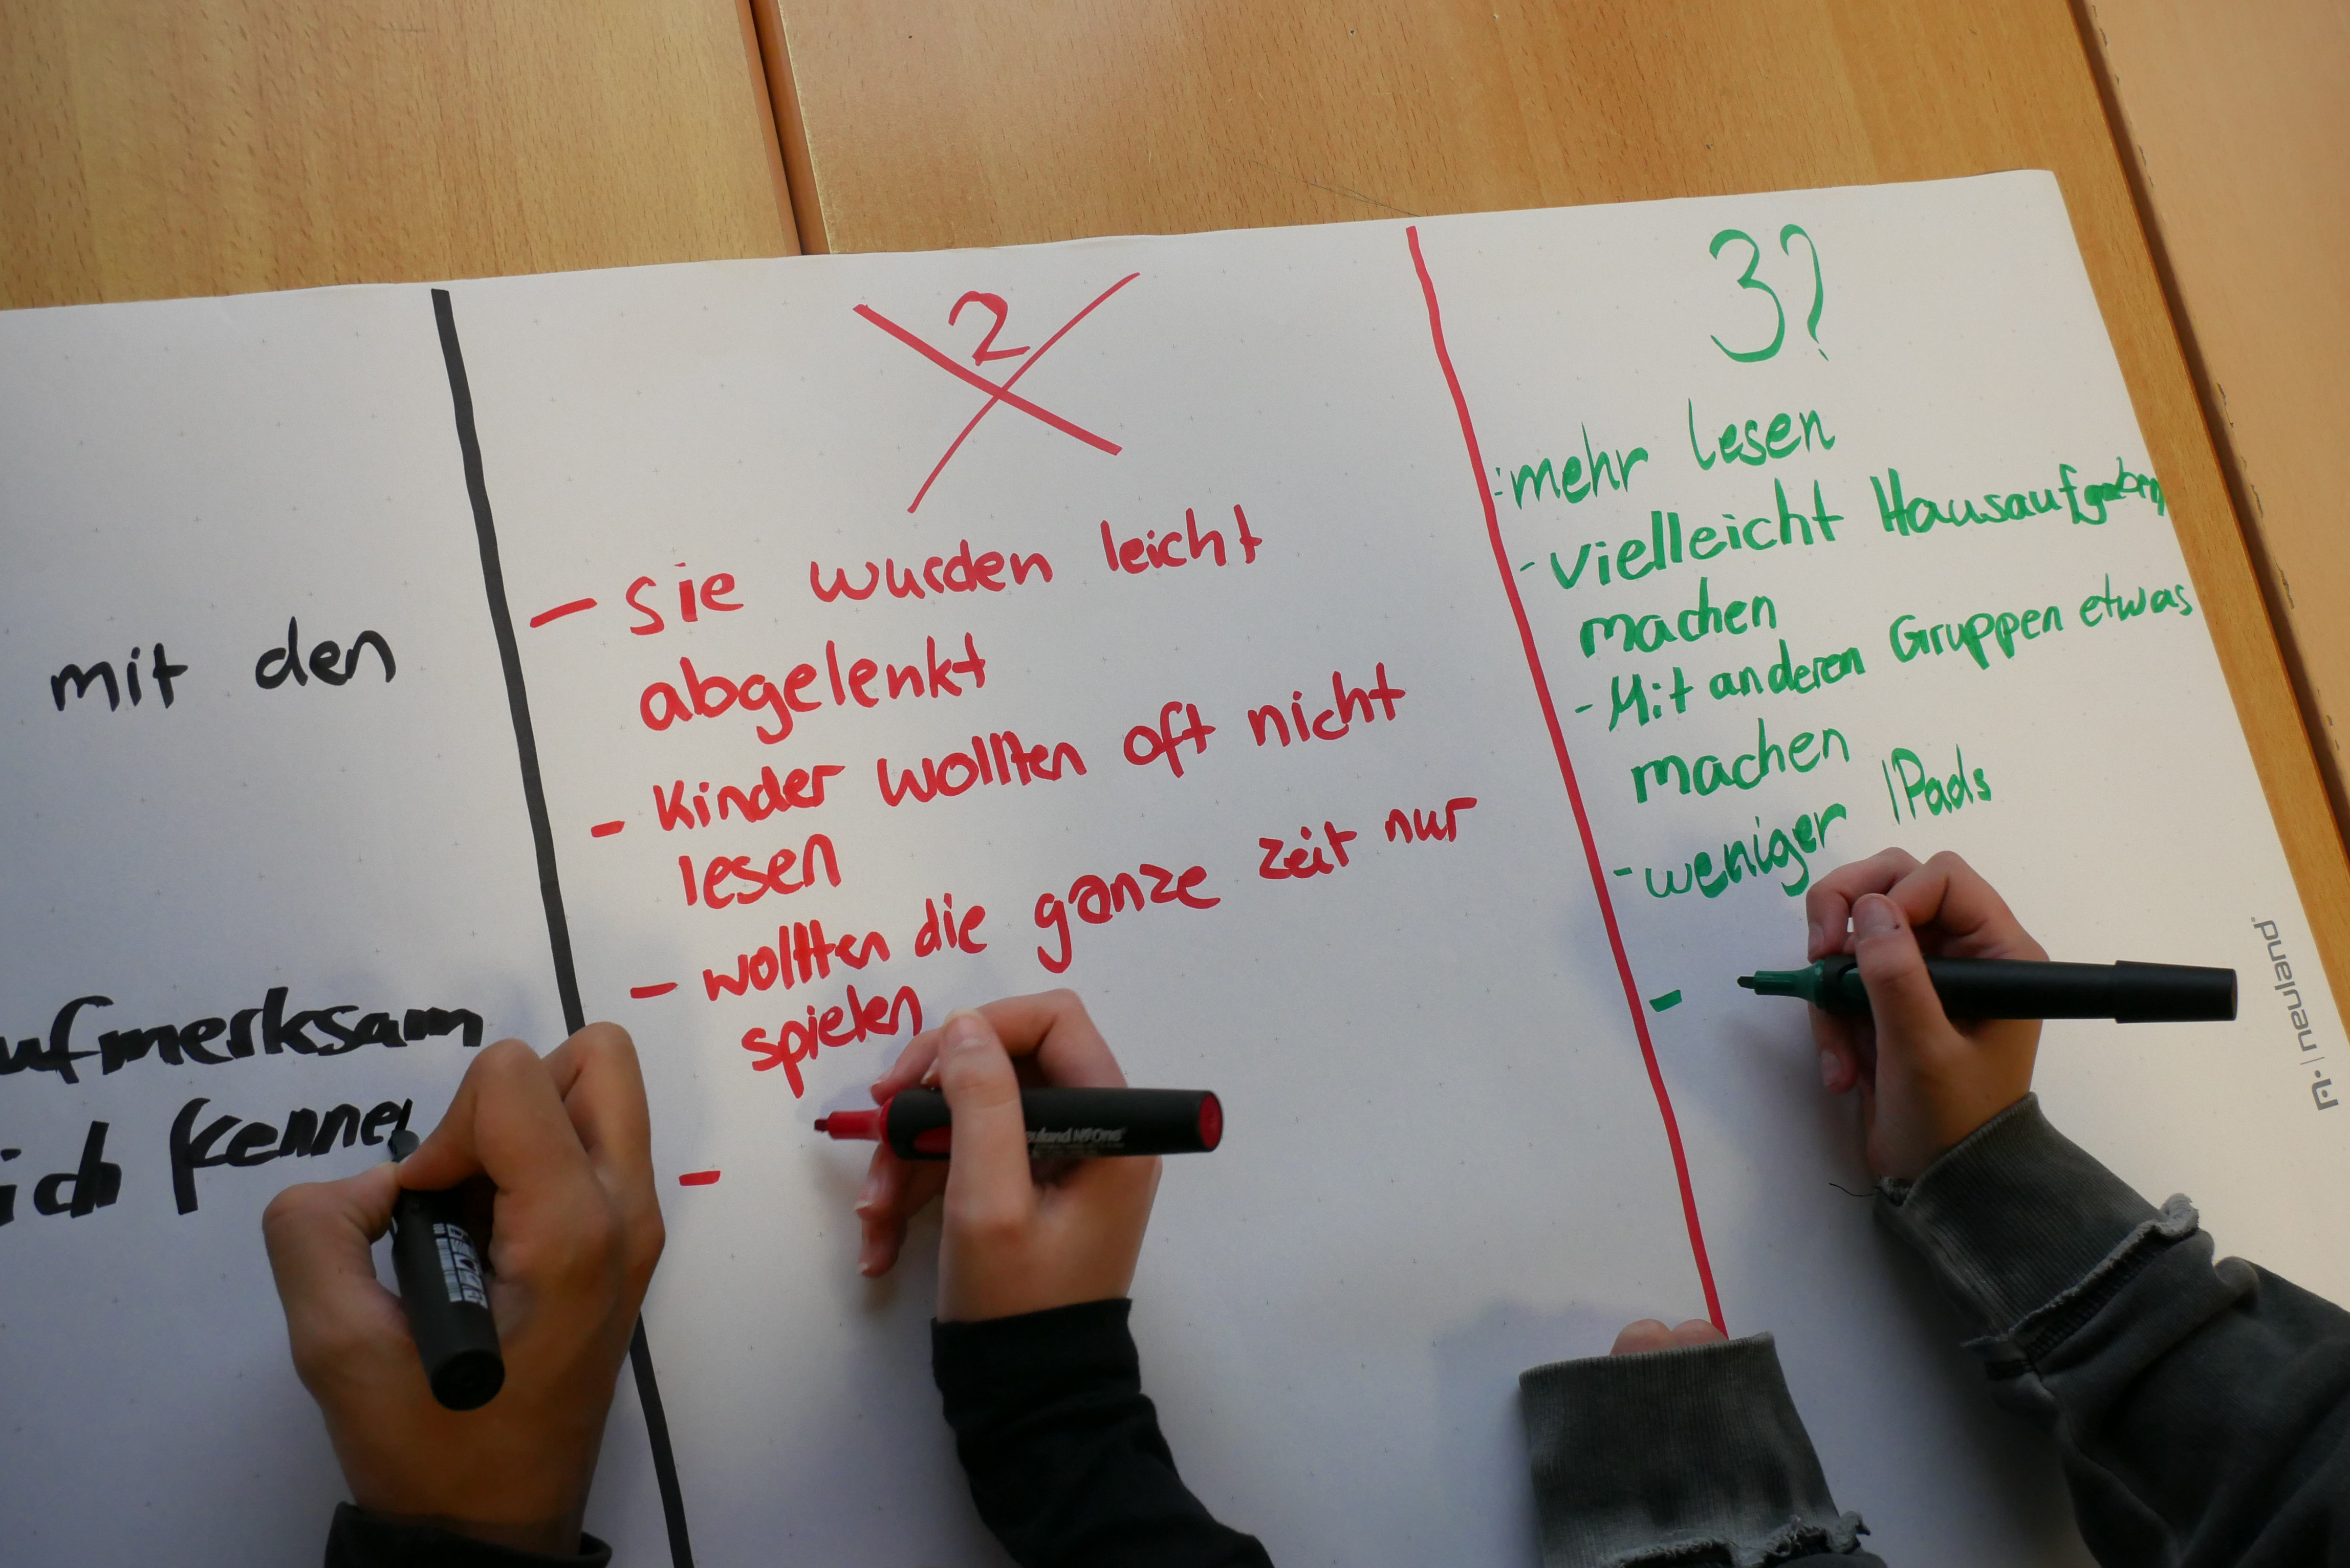 mit den
ufmerksam
ich kenne
2
- sie wurden leicht
abgelenkt
- Kinder wollten oft nicht
lesen
- wollten die ganze zeit nur
spielen
-
3?
- mehr lesen
- vielleicht Hausaufgaben
machen
- Mit anderen Gruppen etwas
machen
- weniger IPads
-
neuland